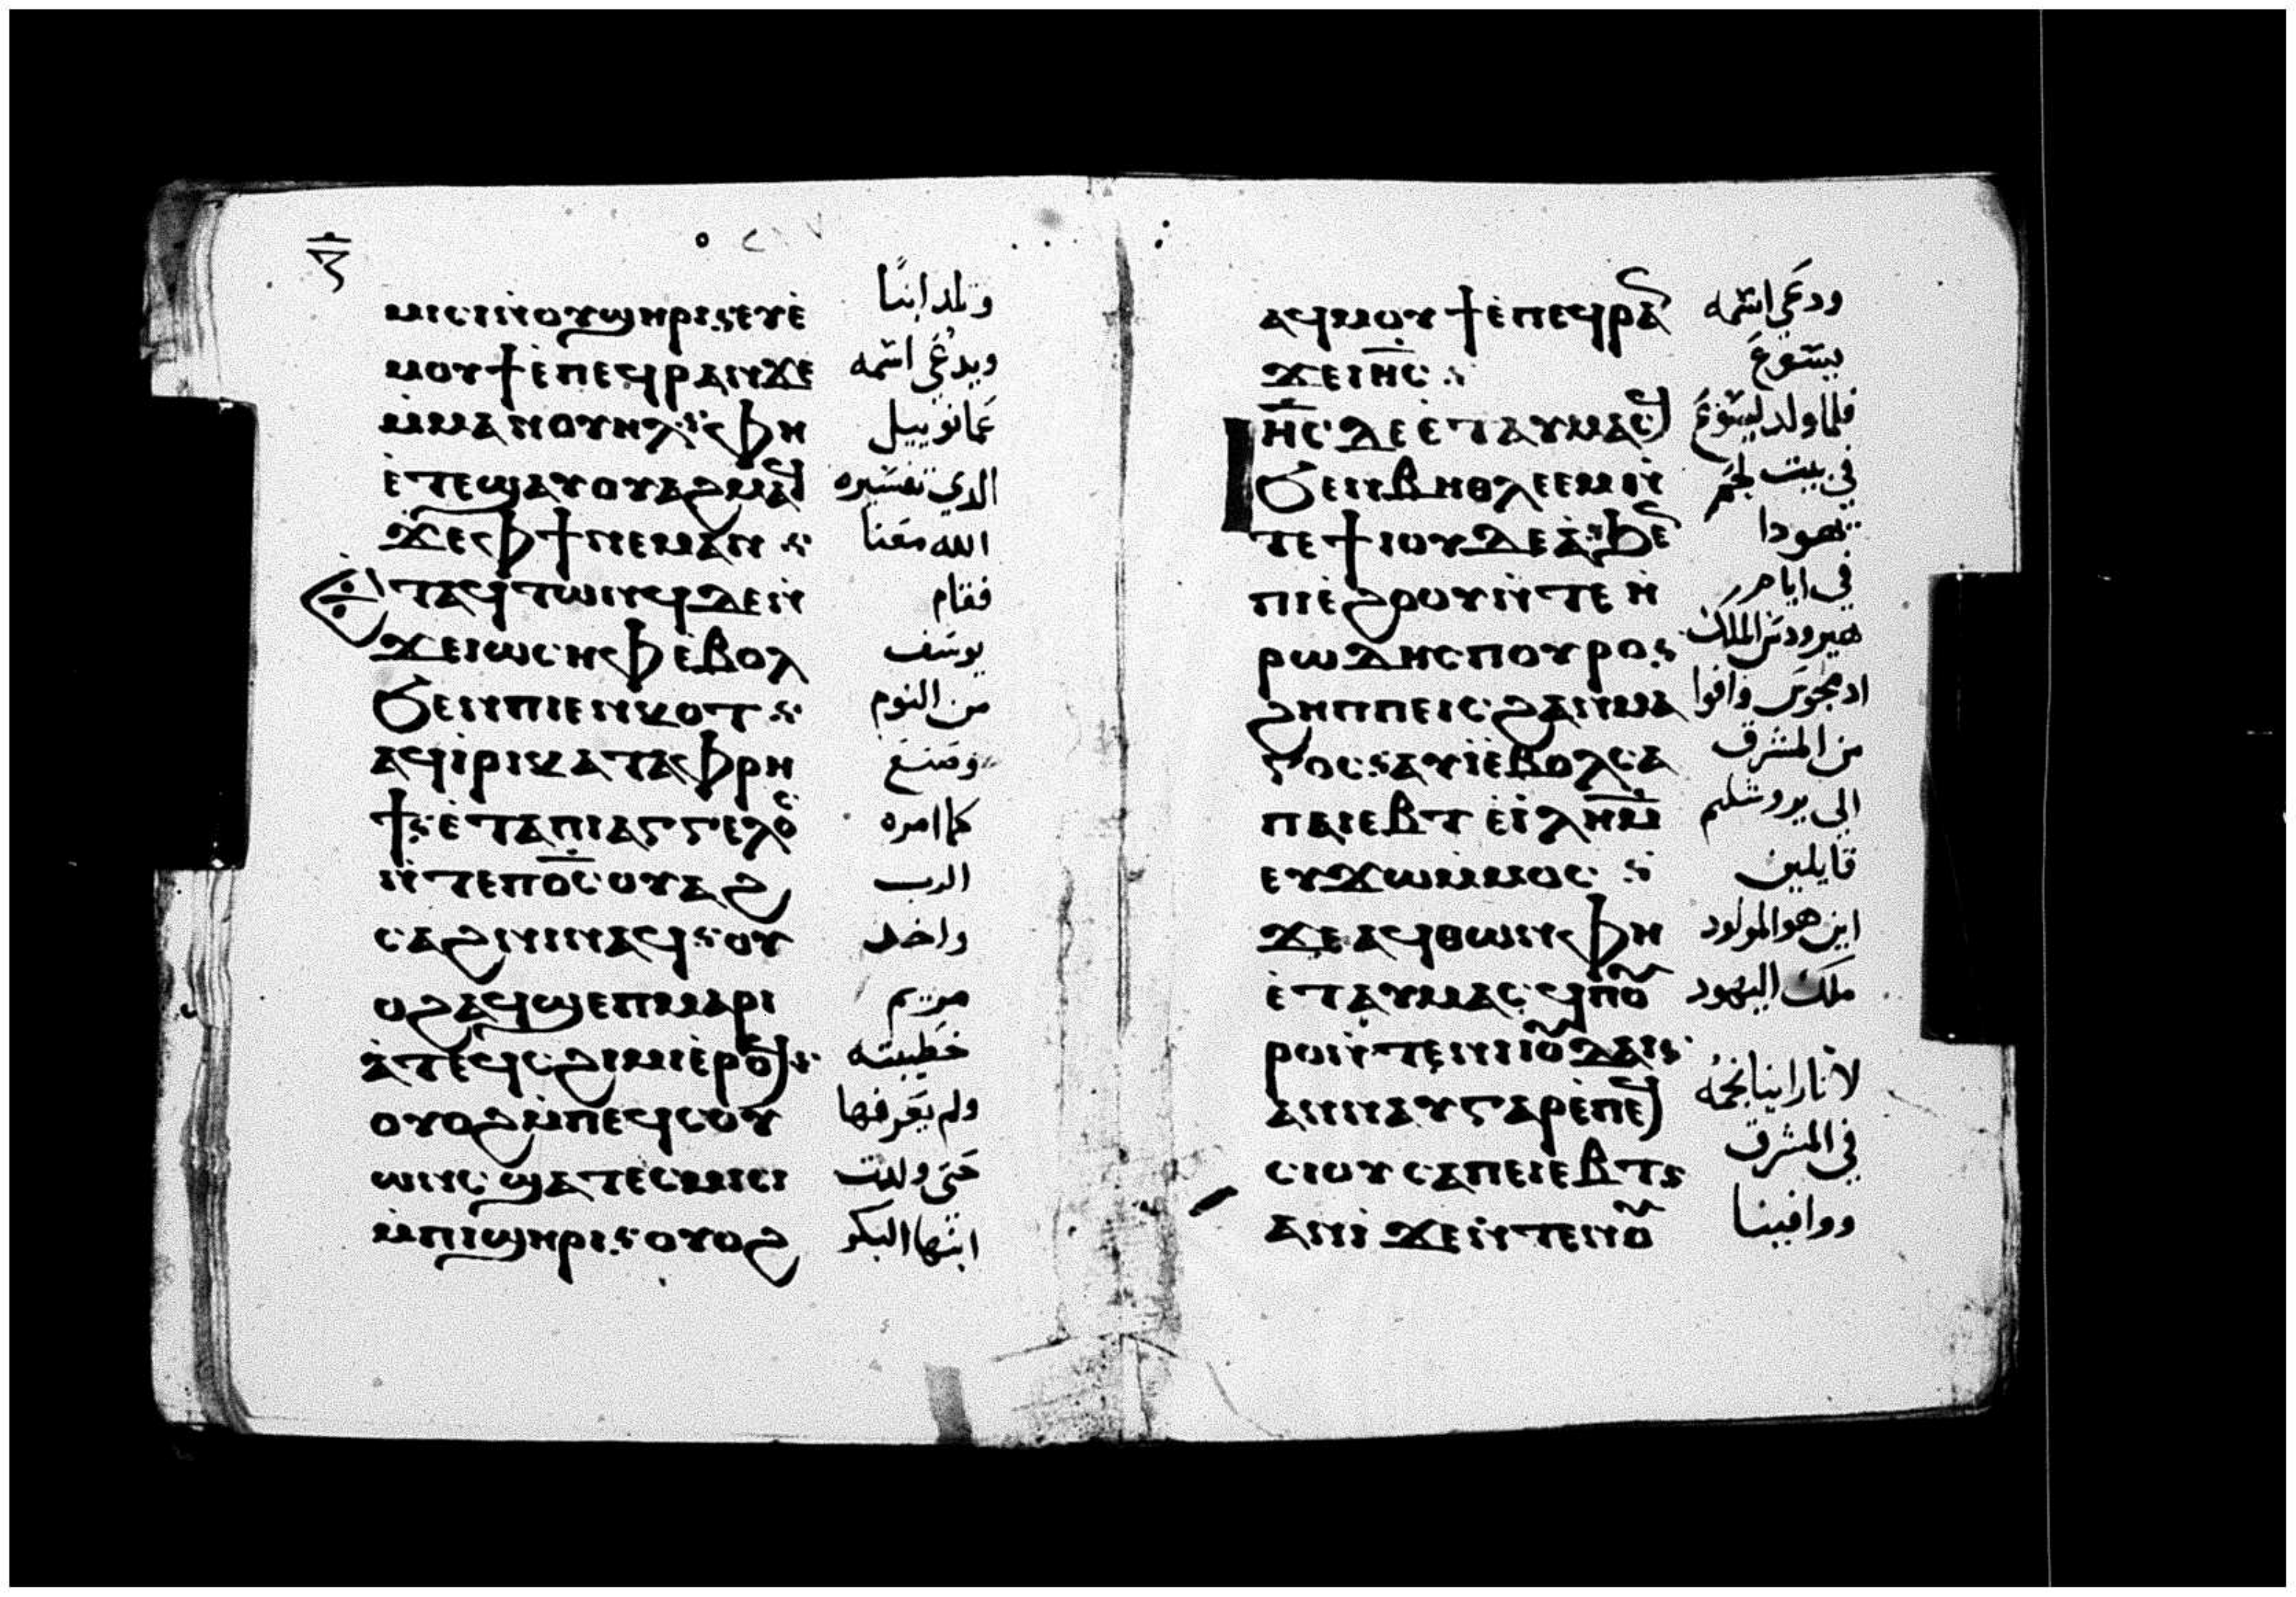 ⲙⲓⲥⲓⲛ̇ⲟⲩϣⲏⲣⲓ: ⲉⲩⲉ̇
ⲙⲟⲩϯⲉ̇ⲡⲉϥⲣⲁⲛϫⲉ
ⲙ̇ⲙⲁⲛⲟⲩⲏⲗ: ⲫⲏ
ⲉ̇ⲧⲉϣⲁⲩⲟⲩⲁϩⲙⲉϥ
ϫⲉⲫϯⲛⲉⲙⲁⲛ:
ⲉⲧⲁϥⲧⲱⲛϥⲇⲉⲛ̇
ϫⲉⲓⲱⲥⲏⲫⲉ̇ⲃⲟⲗ
ϧⲉⲛⲡⲓⲉⲛⲕⲟⲧ:
ⲁϥⲓ̇ⲣⲓⲕⲁⲧⲁⲫⲣⲏ
ϯ: ⲉ̇ⲧⲁⲡⲓⲁⲅⲅⲉⲗⲟⲥ
ⲛ̇ⲧⲉⲡⲟ̅ⲥ̅ⲟⲩⲁϩ
ⲥⲁϩⲛⲓⲛⲁϥ: ⲟⲩ
ⲟϩⲁϥϣⲉⲡⲙⲁⲣⲓ
ⲁ̇ⲧⲉϥⲥϩⲓⲙⲓⲉ̇ⲣⲟϥ:
ⲟⲩⲟϩⲙ̇ⲡⲉϥⲥⲟⲩ
ⲱⲛⲥϣⲁⲧⲉⲥⲙⲓⲥⲓ
ⲙ̇ⲡⲓϣⲏⲣⲓ: ⲟⲩⲟϩ
وتلد ابنا
ويدعي اسمه
عمانوييل
الدي تفسيره
الله معنا
فقام
يوسف
من النوم
وصنع
كما امره
الرب
واخد
مريم
خطيبته
ولم يعرفها
حتي ولدت
ابنها البكر
ⲁϥⲙⲟⲩϯⲉ̇ⲡⲉϥⲣⲁⲛ
ϫⲉⲓⲏ̅ⲥ̅:
ⲓⲏ̅ⲥ̅ⲇⲉⲉ̇ⲧⲁⲩⲙⲁⲥϥ
ϧⲉⲛⲃⲏⲑⲗⲉⲉⲙⲛ̇
ⲧⲉϯⲓⲟⲩⲇⲉⲁ̇: ϧⲉⲛ
ⲡⲓⲉ̇ϩⲟⲟⲩⲛ̇ⲧⲉⲏ̇
ⲣⲱⲇⲏⲥⲡⲟⲩⲣⲟ:
ϩⲏⲡⲡⲉⲓⲥϩⲁⲛⲙⲁ
ⲅⲟⲥ: ⲁⲩⲓ̇ⲉ̇ⲃⲟⲗⲥⲁ
ⲡⲁⲓⲉⲃⲧ ⲉ̇ⲓ̅ⲗ̅ⲏ̅ⲙ̅
ⲉⲩϫⲱⲙ̇ⲙⲟⲥ:
ϫⲉⲁϥⲑⲱⲛⲫⲏ
ⲉ̇ⲧⲁⲩⲙⲁⲥϥⲡⲟⲩ
ⲣⲟⲛ̇ⲧⲉⲛⲓⲓⲟⲩⲇⲁⲓ:
ⲁⲛⲛⲁⲩⲅⲁⲣⲉ̇ⲡⲉϥ
ⲥⲓⲟⲩⲥⲁⲡⲉⲓⲉⲃⲧ:
ⲁⲛⲓ̇ ϫⲉⲛ̇ⲧⲉⲛⲟⲩ
ودعي اسمه
يسوع
فلما ولد يسوع
في بيت لحم
يهودا
في ايام
هيرودس الملك
اد مجوس وافوا
من المشرق
الي يروشليم
قايلين
اين هو المولود
ملك اليهود
لاننا راينا نجمه
في المشرق
ووافينا